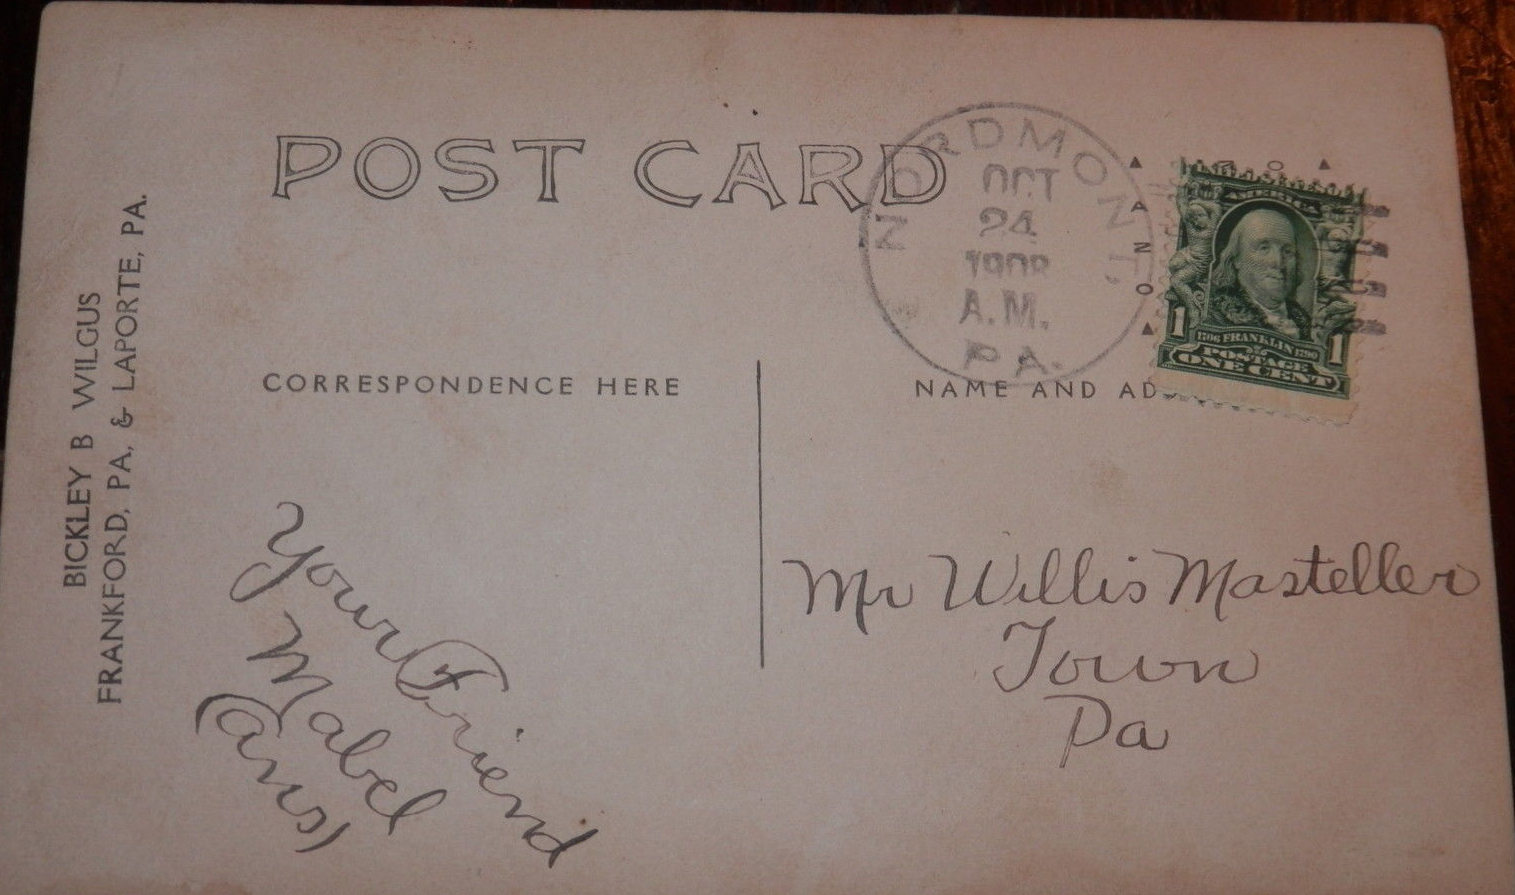 POST CARD
BICKLEY B WILGUS
FRANKFORD, PA. & LAPORTE, PA.
NORDMONT,
OCT
24
1908
A.M.
PA.
AZO
AMERICA
1706 FRANKLIN 1790
POSTAGE
1 ONE CENT 1
CORRESPONDENCE HERE
NAME AND AD
Your Friend
Mabel
(ans)
Mr Willis Masteller
Town
Pa